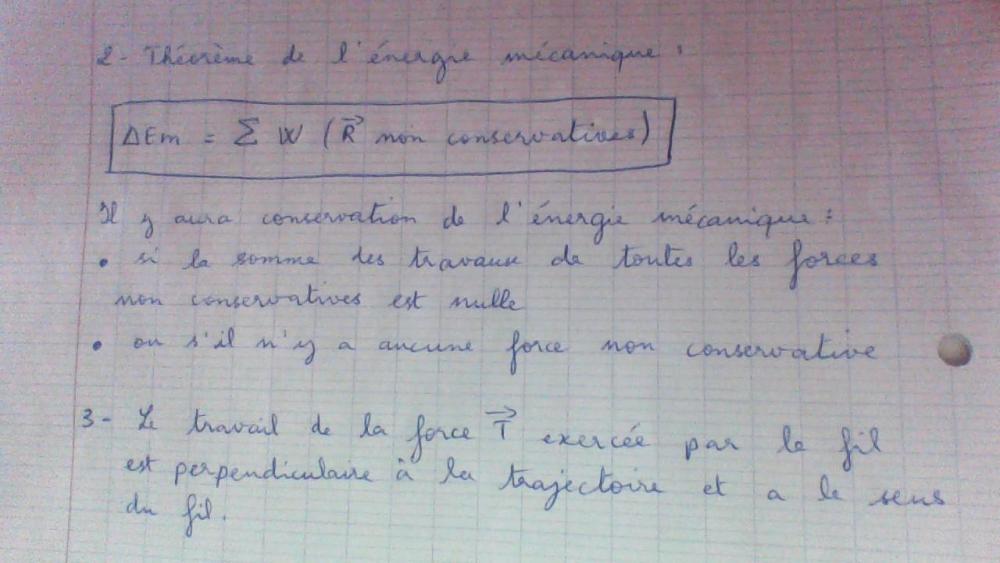 2- Théorème de l'énergie mécanique :
ΔEm = Σ W (R⃗ non conservatives)
Il y aura conservation de l'énergie mécanique :
• si la somme des travaux de toutes les forces
non conservatives est nulle
• ou s'il n'y a aucune force non conservative
3- Le travail de la force T⃗ exercée par le fil
est perpendiculaire à la trajectoire et a le sens
du fil.